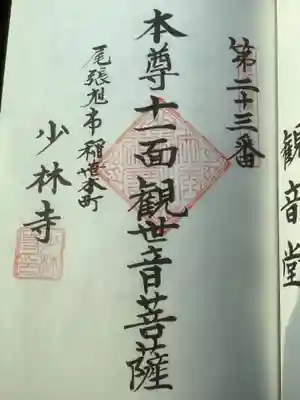 観音堂
第二十三番
本尊十一面観世音菩薩
尾張旭市稲葉本町
少林寺